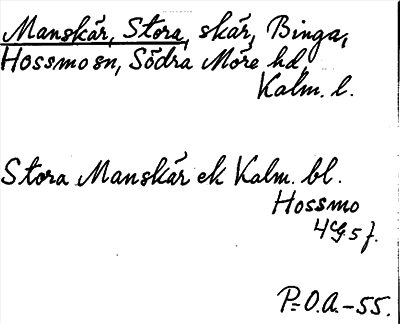 Manskär, Stora, skär, Binga,
Hossmo sn, Södra Möre hd,
Kalm. l.
Stora Manskär ek Kalm. bl.
Hossmo
4G 5f.
P-O.A.-55.